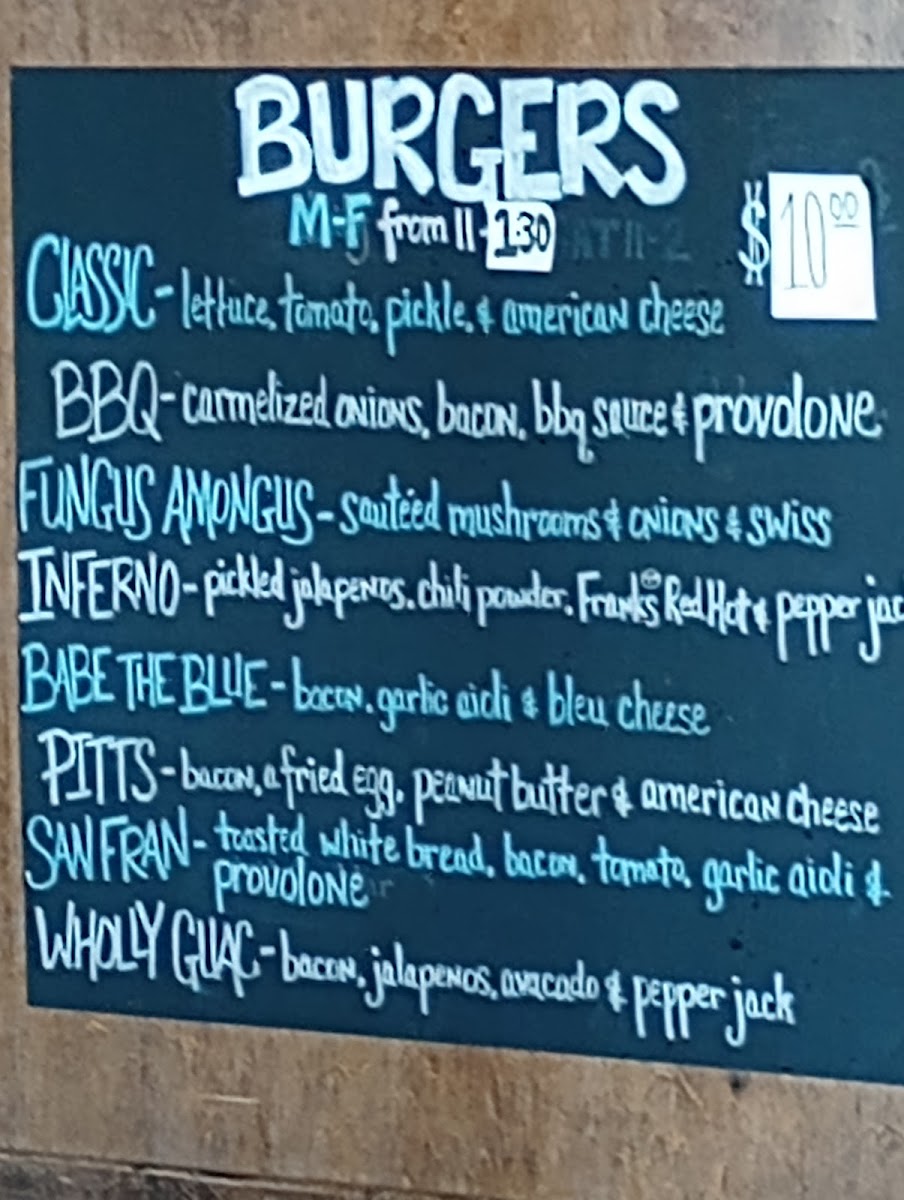 BURGERS
M-F from 11-1:30
$10.00
CLASSIC - lettuce, tomato, pickle, & american cheese
BBQ - carmelized onions, bacon, bbq sauce & provolone
FUNGUS AMONGUS - sautéed mushrooms & onions & swiss
INFERNO - pickled jalapenos, chili powder, Frank's Red Hot & pepper jac
BABE THE BLUE - bacon, garlic aioli & bleu cheese
PITTS - bacon, a fried egg, peanut butter & american cheese
SAN FRAN - toasted white bread, bacon, tomato, garlic aioli &
provolone
WHOLLY GUAC - bacon, jalapenos, avacado & pepper jack